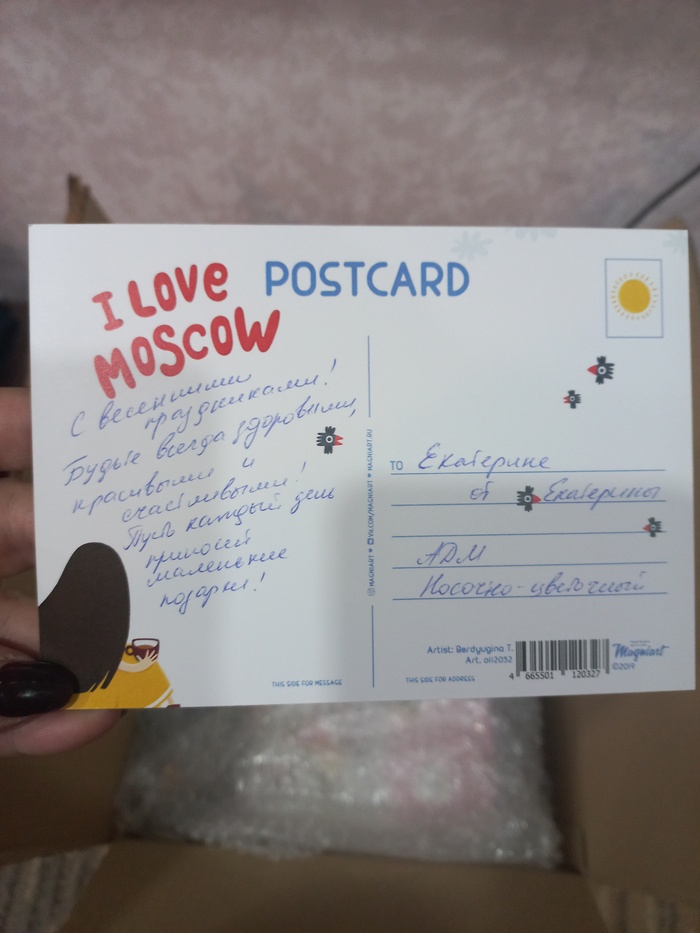 I LOVE
MOSCOW
POSTCARD
С весенними
праздниками!
Будьте всегда здоровыми,
красивыми и
счастливыми!
Пусть каждый день
приносит
маленькие
подарки!
MAGNIART VK.COM/MAGNIART MAGNIART.RU
TO Екатерине
от Екатерины
АДМ
Носочно-цветочный
Artist: Berdyugina T.
Art. oli2032
4 665501 120327
Magniart
©2019
THIS SIDE FOR MESSAGE
THIS SIDE FOR ADDRESS